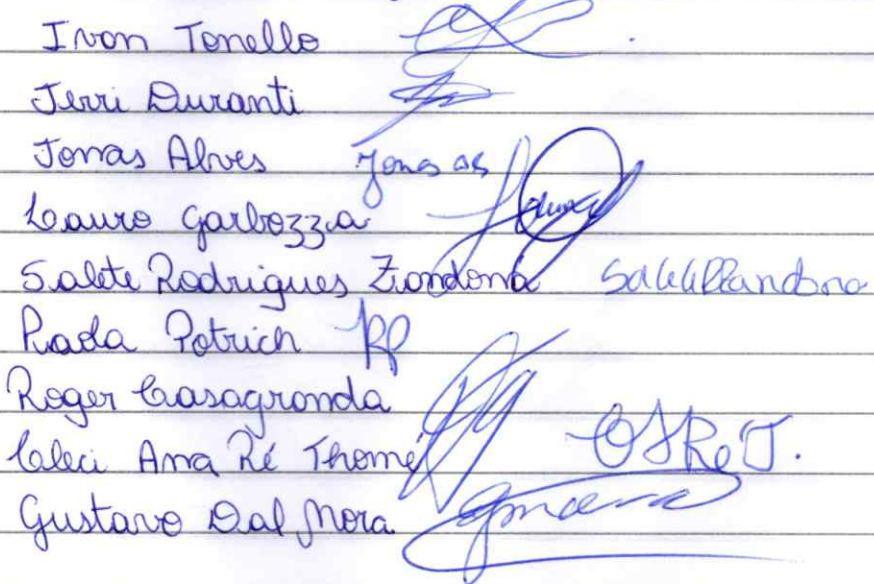 Ivan Tonello
Jerri Duranti
Jonas Alves Jonas as
Lauro Garbozza
Salete Rodrigues Zandoná
Potrich RP
Roger Casagranda
Cleci Ana Ré Thomé
Gustavo Dal Mora